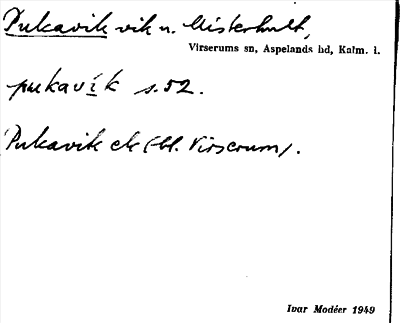 Pukavik vik n. Misterhult,
Virserums sn, Aspelands hd, Kalm. l.
pukavík s. 52.
Pukavik ek (bl. Virserum).
Ivar Modéer 1949